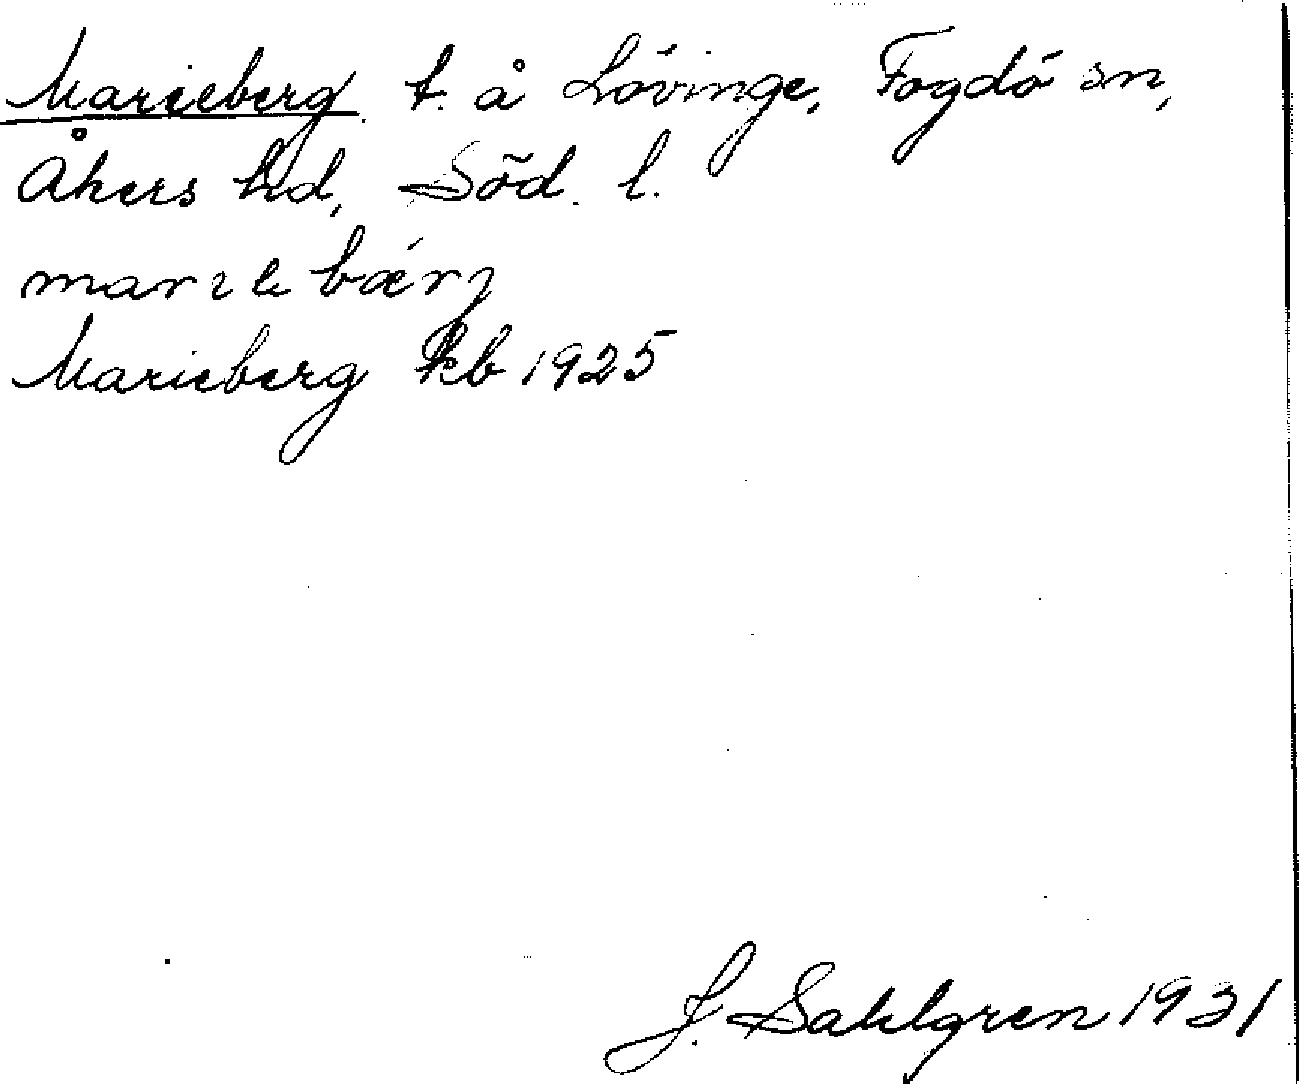 Marieberg t. å Lövinge, Fogdö sn,
Åkers hd, Söd. l.
marıebærj
Marieberg kb 1925
J. Sahlgren 1931